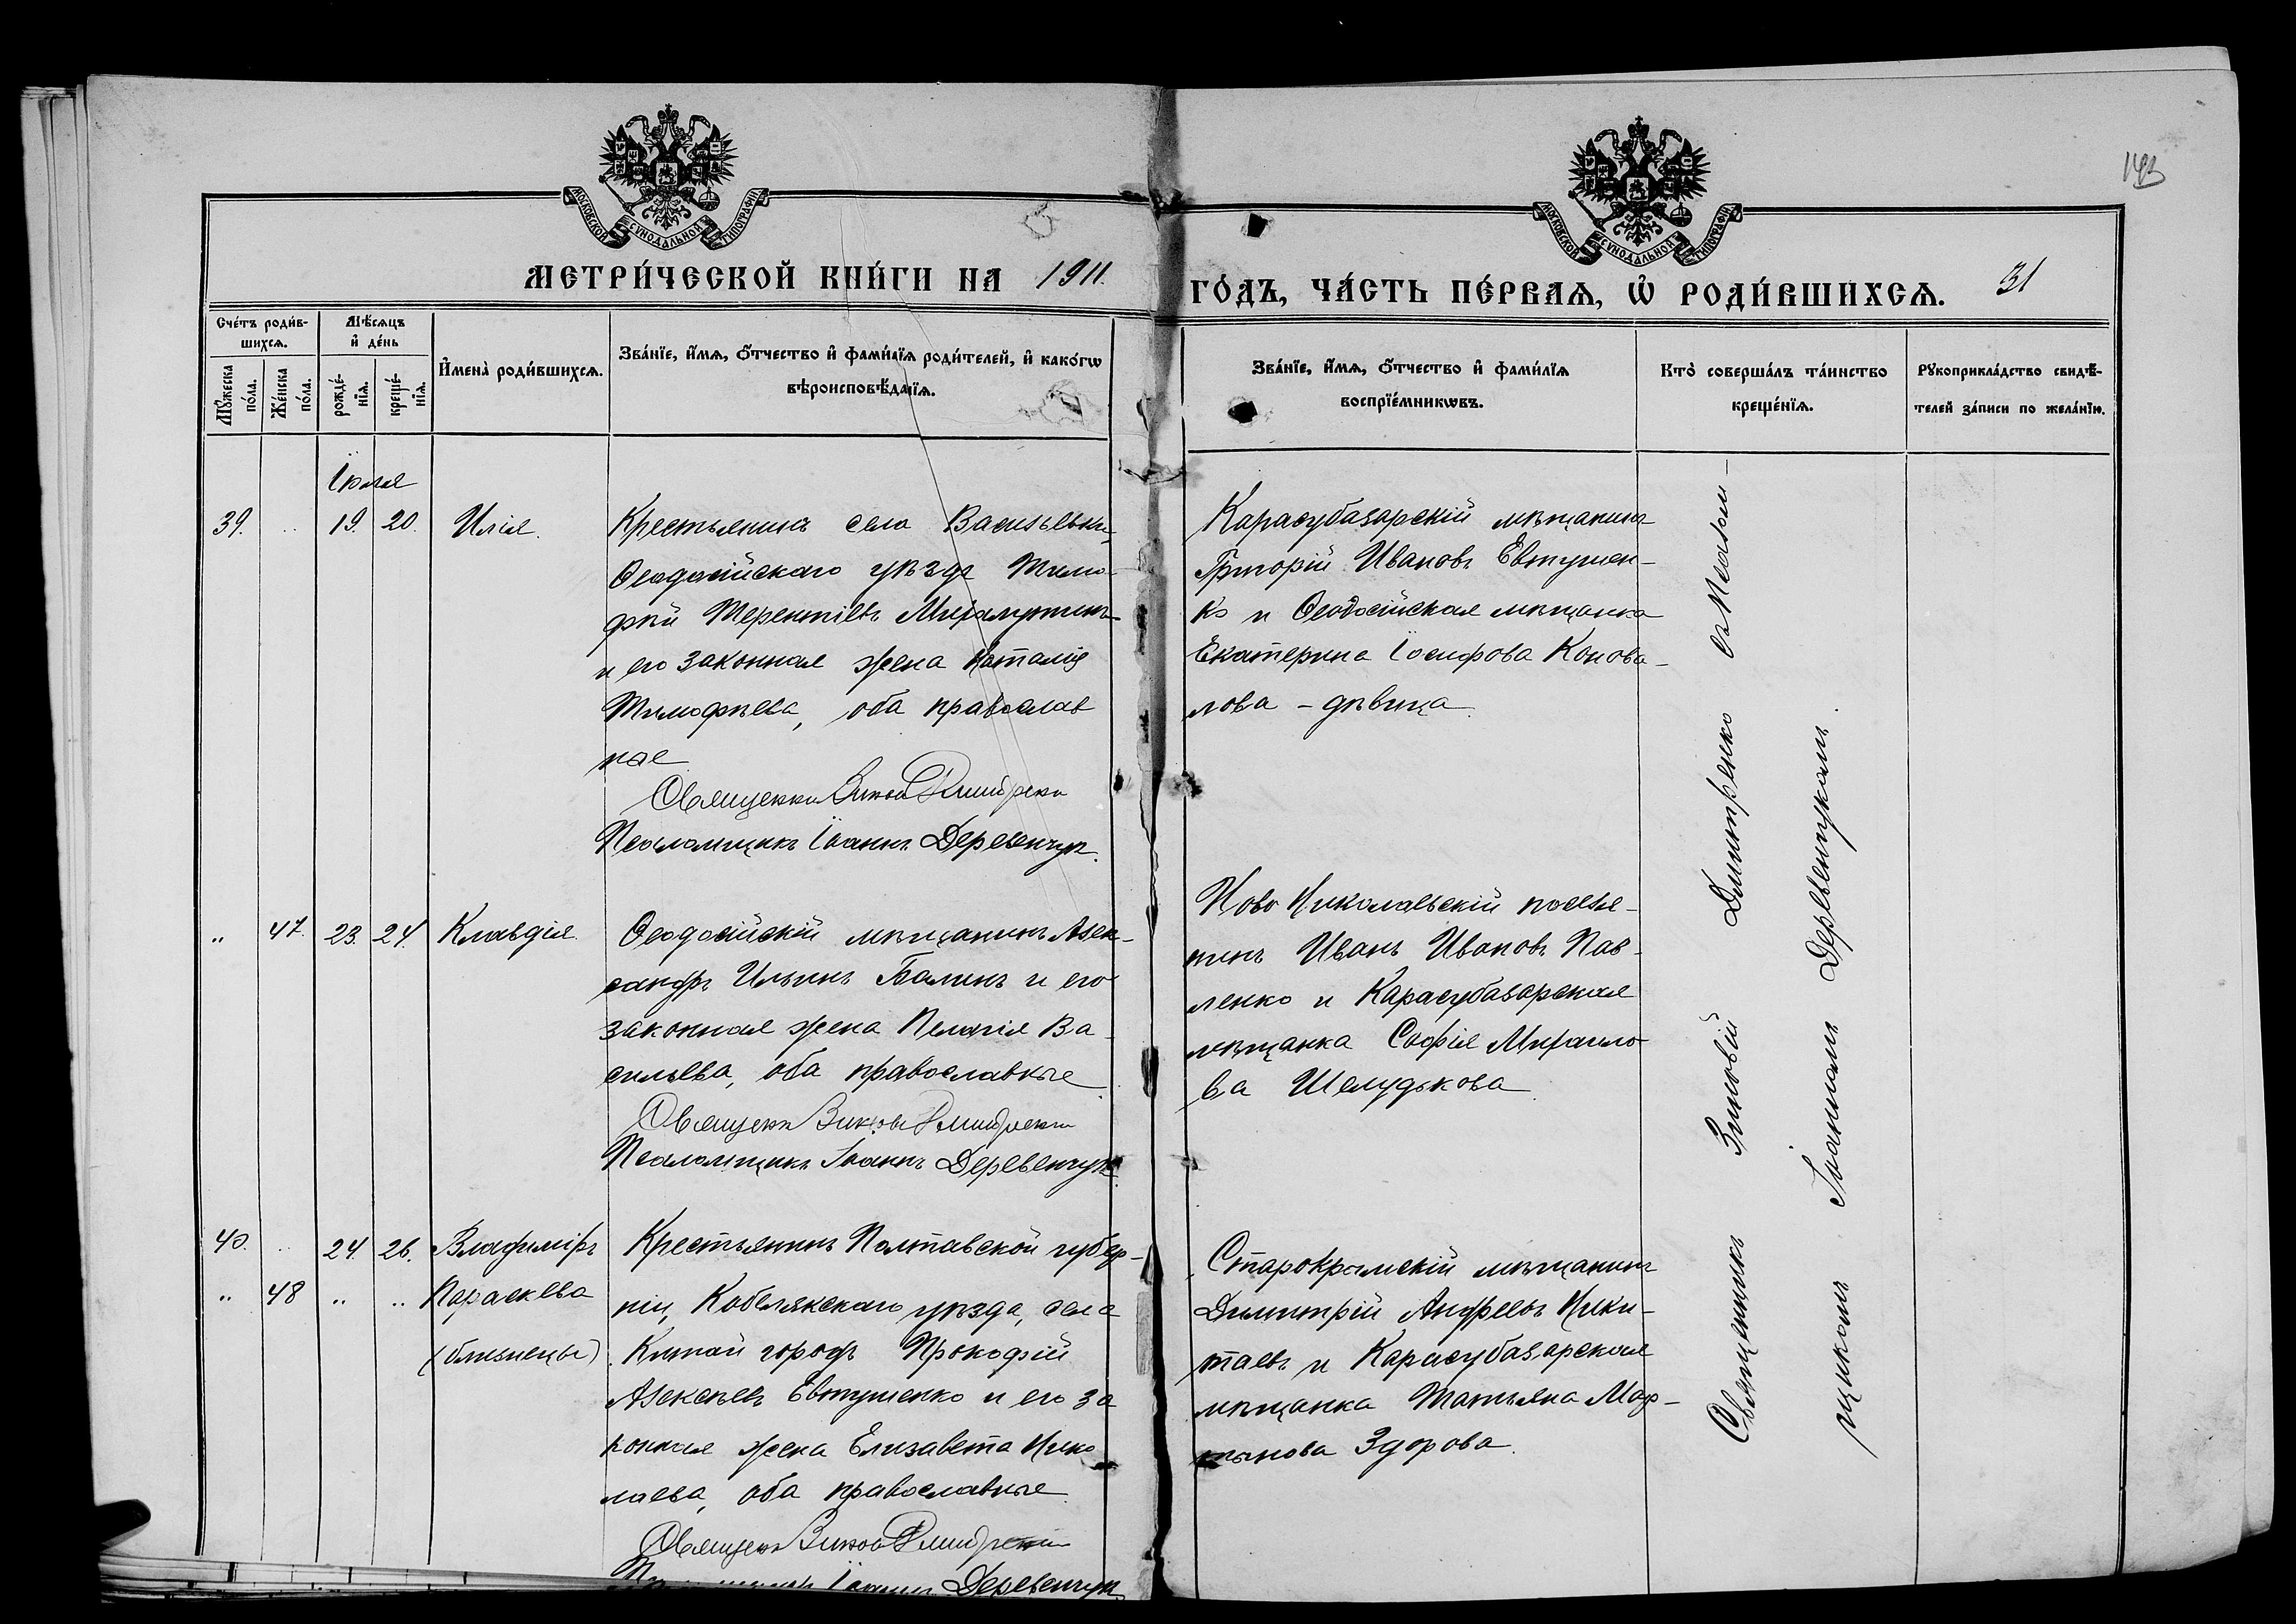 193
МОСКОВСКОЙ СѴНОДАЛЬНОЙ ТИПОГРАФІИ
МОСКОВСКОЙ СѴНОДАЛЬНОЙ ТИПОГРАФІИ
МЕТРИ́ЧЕСКОЙ КНИ́ГИ НА 1911.
ГО́ДЪ, ЧА́СТЬ ПЕ́РВАѦ, Ѡ҆ РОДИ́ВШИХСѦ. 31
Сче́тъ роди́в-
шихсѧ.
Мꙋ́жеска
по́ла.
Же́нска
по́ла.
Мѣ́сѧцъ
и҆ де́нь
рожде́-
нїѧ.
креще́-
нїѧ.
И҆мена̀ роди́вшихсѧ.
Зва́нїе, и҆́мѧ, ѻ҆́тчество и҆ фами́лїѧ роди́телей, и҆ како́гѡ
вѣроисповѣ́данїѧ.
Зва́нїе, и҆́мѧ, ѻ҆́тчество и҆ фами́лїѧ
воспрїе́мникѡвъ.
Кто̀ соверша́лъ та́инство
креще́нїѧ.
Рꙋкоприкла́дство свидѣ́-
телей за́писи по жела́нїю.
Іюля
39. .. 19. 20. Илія.
Крестьянинъ села Васильевки,
Ѳеодосійскаго уѣзда Тимо-
фей Терентіевъ
и его законная жена Наталія
Тимофѣева, оба православ
ные
Священникъ Зиновій Дмитренко
Псаломщикъ Іоаннъ Деревенчук.
Карасубазарскій мѣщанинъ
Григорій Ивановъ Евтушен-
ко и Ѳеодосійская мѣщанка
Екатерина Іосифова Конова-
лова - дѣвица.
„ 47. 23. 24. Клавдія.
Ѳеодосійскій мѣщанинъ Алек-
сандръ Ильинъ Балинъ и его
законная жена Пелагія Ва-
сильева, оба православные
Священникъ Зиновій Дмитренко
Псаломщикъ Іоаннъ Деревенчук.
Ново Николаевскій поселя-
нинъ Иванъ Ивановъ Пав-
ленко и Карасубазарская
мѣщанка Софія Михаило-
ва Шелудькова.
40. .. 24. 26. Владиміръ
„ 48 „ „ Параскева
(близнецы)
Крестьянинъ Полтавской губер-
ніи, Кобелякскаго уѣзда, села
Китай городъ Прокофій
Алексѣевъ Евтушенко и его за
конная жена Елизавета Нико
лаева, оба православные.
Священникъ Зиновій Дмитренко
Псаломщикъ Іоаннъ Деревенчук.
Старокрымскій мѣщанинъ
Димитрій Андреевъ Ники-
таевъ и Карасубазарская
мѣщанка Татьяна Мар-
тынова Здорова.
Священникъ Зиновій Дмитренко съ Псалом-
щикомъ Іоанномъ Деревенчукомъ.